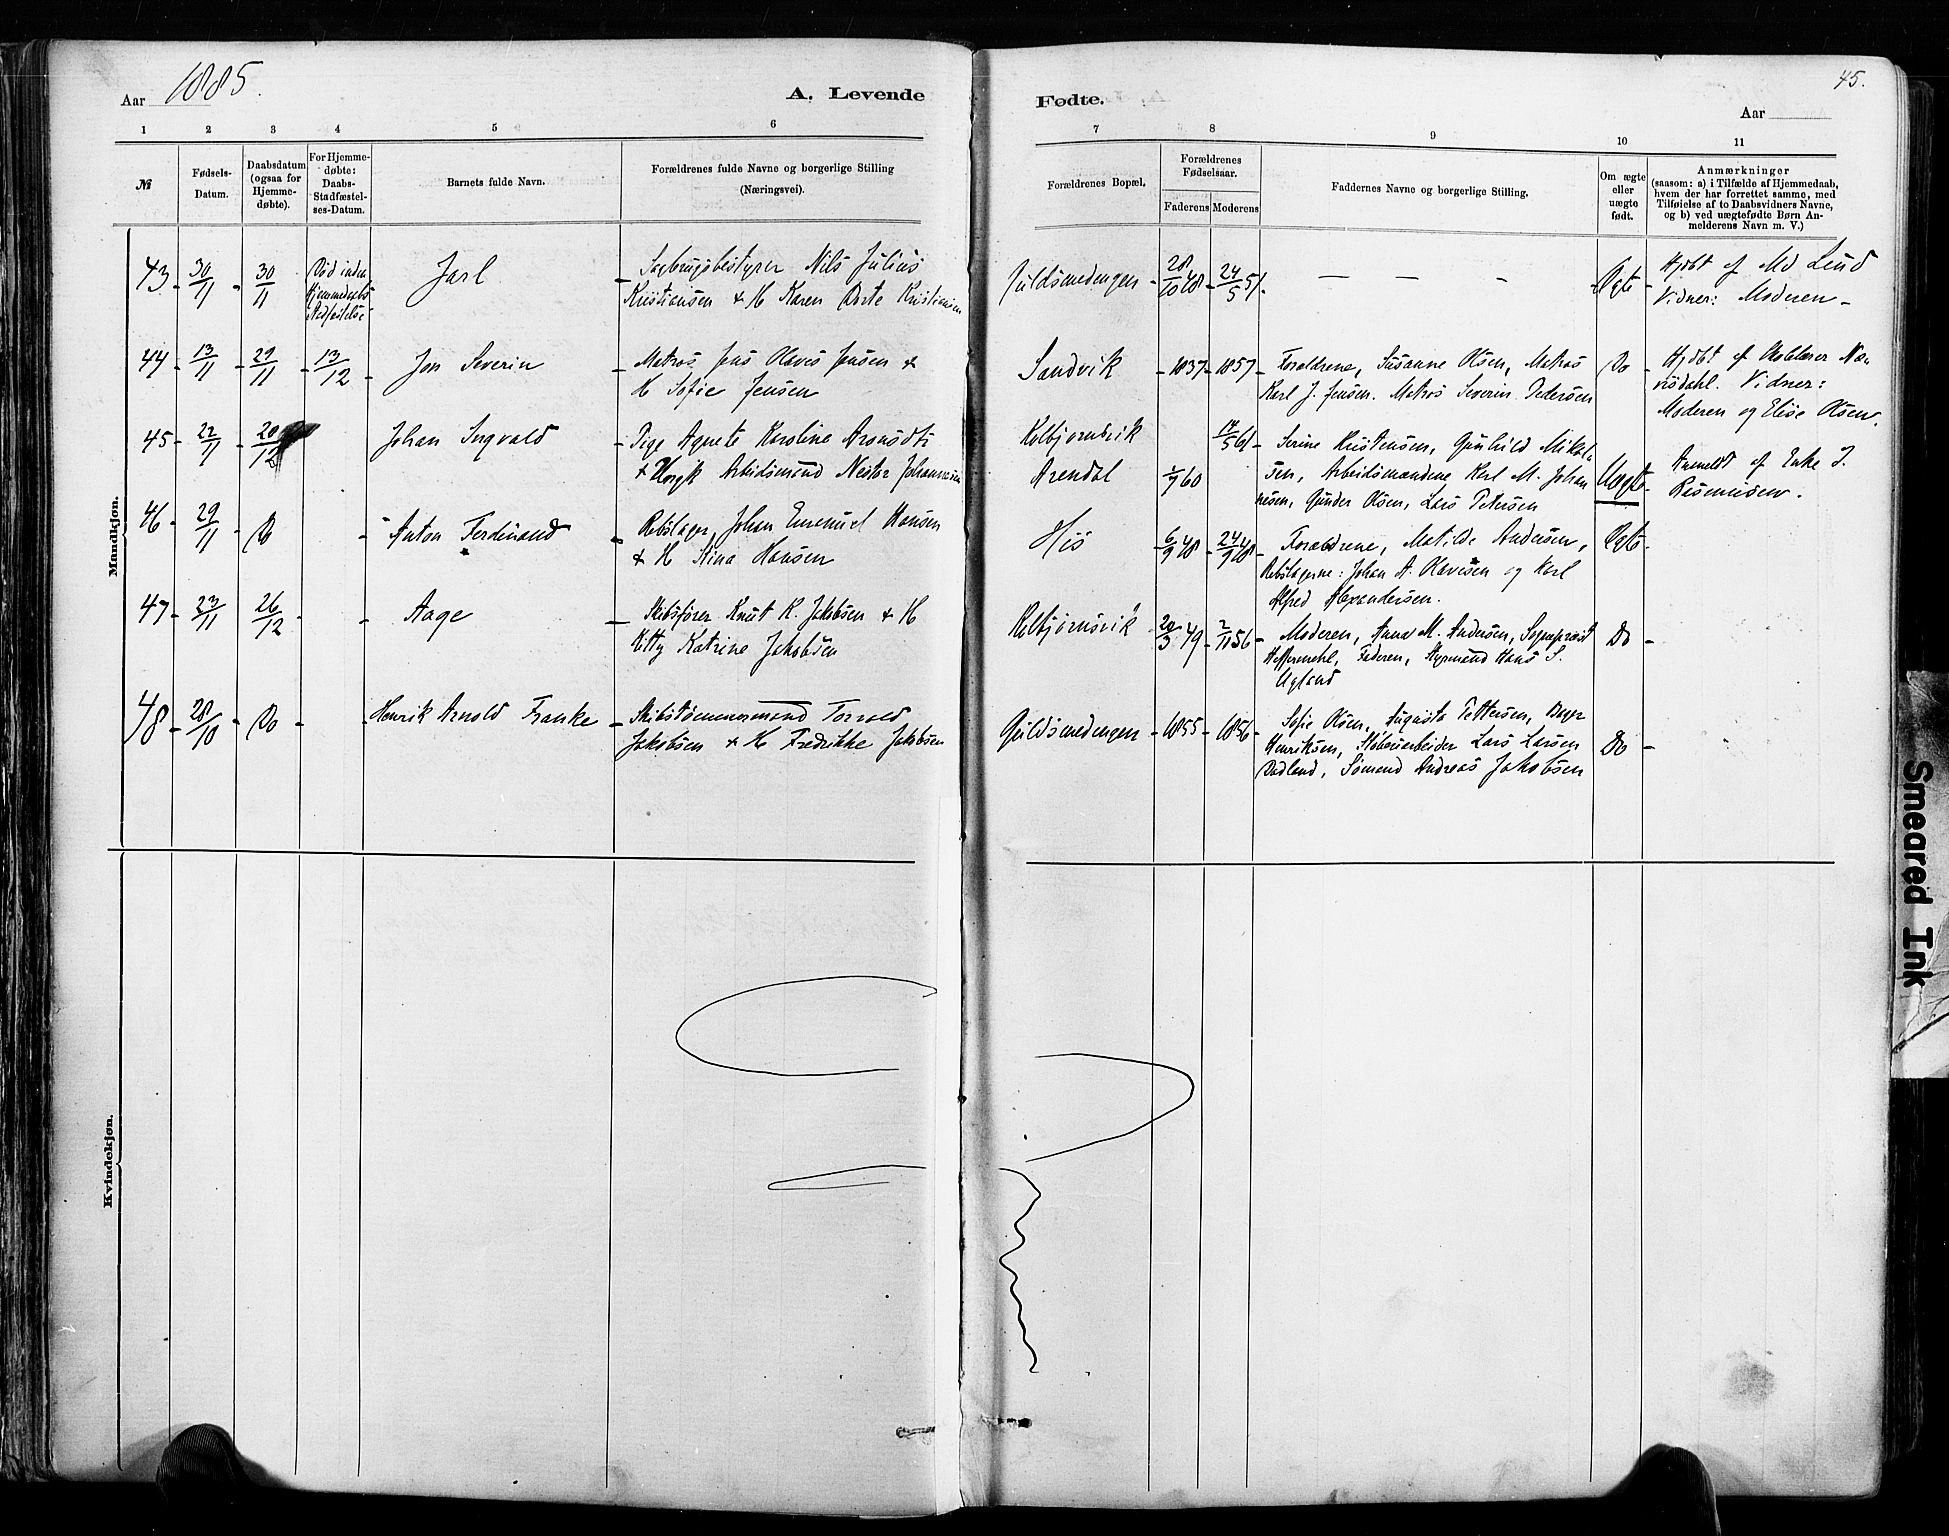 Aar 1885.
A. Levende
Fødte.
45.
Aar
1 2 3 4 5 6
7 8 9 10 11
№
Fødsels-
Datum.
Daabsdatum
(ogsaa for
Hjemme-
døbte).
For Hjemme-
døbte:
Daabs-
Stadfæstel-
ses-Datum.
Barnets fulde Navn.
Forældrenes fulde Navne og borgerlige Stilling
(Næringsvei).
Forældrenes Bopæl.
Forældrenes
Fødselsaar.
Faderens Moderens
Faddernes Navne og borgerlige Stilling.
Om ægte
eller
uægte
født.
Anmærkninger
(saasom: a) i Tilfælde af Hjemmedaab,
hvem der har forrettet samme, med
Tilføielse af to Daabsvidners Navne,
og b) ved uægtefødte Børn An-
melderens Navn m. V.)
Mandkjøn.
43 - 30/11 - 30/11
Død inden
Hjemmedaabs
Stadfæstelse
Jarl
Sagbrugsbestyrer Nils Julius
Kristiansen & H Karen Dorte Kristiansen
Guldsmedengen - 28/10 48 - 24/5 51.
— — -
Ægte
Hjdbt af Md Lund
Vidner: Moderen -
44 - 13/11 - 29/11 - 13/12 -
Jon Severin
Matros Jens Olaves Jensen &
H Sofie Jensen
Sandvik - 1837 - 1857
Forældrene, Susanne Olsen, Matros
Karl J. Jensen. Matros Severin Pedersen
Do
Moderen og Elise Olsen.
45 - 22/11 - 20/12
Johan Ingvald
Pige Agnete Karoline
& Arbeidsmand Johannesen
Kolbjørnsvik 61
Arendal 60
Serine Kristensen, Gunhild Mikal-
sen, Arbeidsmændene Karl M. Johan
nesen, Gunder Olsen, Lars Pettersen
Uægte
Anmeldt af Enke J.
Rasmussen.
46 - 29/11 - Do -
Anton Ferdinand
Rebslager Johan Emanuel Hansen
& H Stina Hansen
His - 6/9 48 - 24/9 48
Forældrene, Matilde Andersen,
Rebslagerne: Johan A. Olavesen og Karl
Alfred Alexandersen.
Ægte
47 - 23/11 - 26/12 -
Aage
Skibsfører Knut K. Jakobsen & H
Kitty Katrine Jakobsen
Kolbjørnsvik 20/3 49 - 2/11 56
Moderen, Anna M. Andersen, Sogneprest
Heffermehl, Faderen, Styrmand Hans S.
Agland
Do -
48 - 28/10 - Do -
Henrik Arnold Franke
Skibstømmermand Torvald
Jakobsen & H Fredrikke Jakobsen
Guldsmedengen - 1855 - 1856
Sofie Olsen, Augusta Pettersen,
Henriksen, Støberiarbeider Lars Larsen
Dadland, Sømand Andreas Jakobsen
Do -
Kvindekjøn.
Smeared Ink